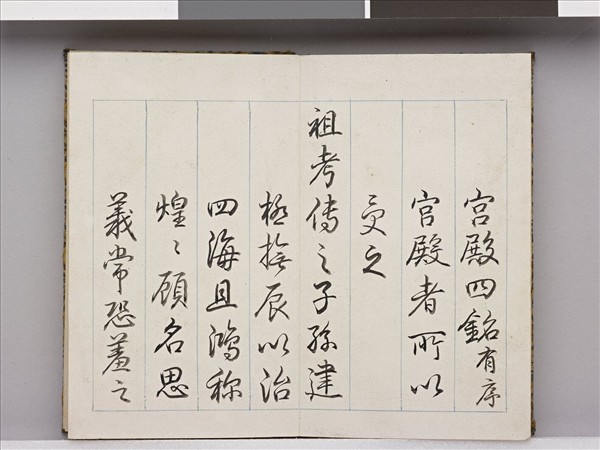 宮殿四銘有序
宮殿者所以
受之
祖考傳之子孫建
極撫辰以治
四海且鴻稱
煌〻顧名思
義常恐羞之